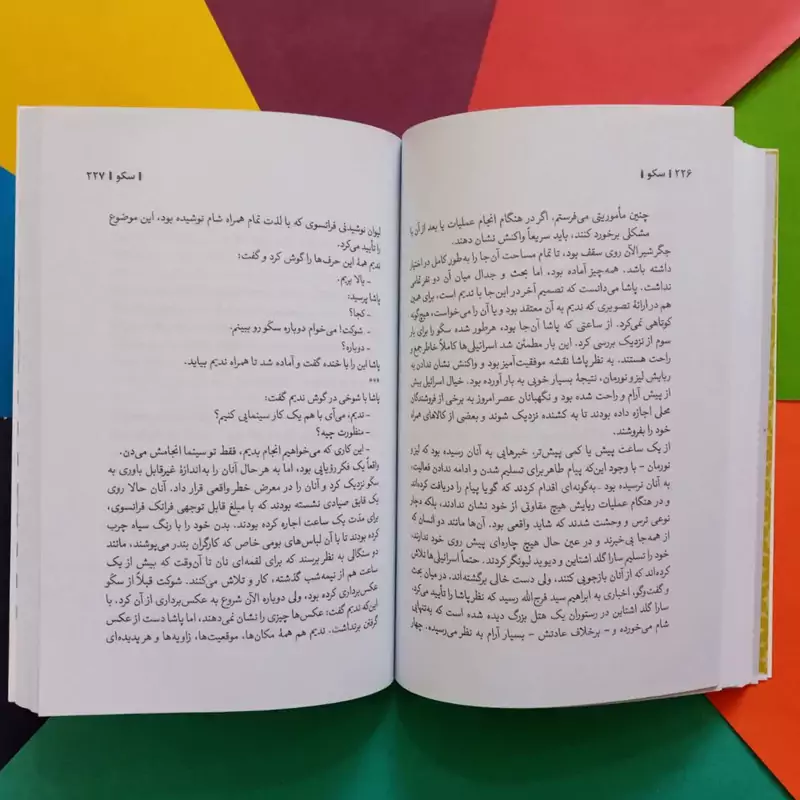 ۲۲۶ | سکو |
چنین مأموریتی می‌فرستم. اگر در هنگام انجام عملیات یا بعد از آن با
مشکلی برخورد کنند، باید سریعاً واکنش نشان دهند.
جگر شیر الآن روی سقف بود، تا تمام مساحت آن‌جا را به‌طور کامل در اختیار
داشته باشد. همه‌چیز آماده بود، اما بحث و جدال میان آن دو نفر تمامی
نداشت. پاشا می‌دانست که تصمیم آخر در این‌جا با ندیم است، برای همین
هم در ارائهٔ تصویری که ندیم به آن معتقد بود و یا آن را می‌خواست، هیچ‌گونه
کوتاهی نمی‌کرد. از ساعتی که پاشا آن‌جا بود، هرطور شده سکّو را برای بار
سوم از نزدیک بررسی کرد. این بار مطمئن شد اسرائیلی‌ها کاملاً خاطرجمع و
راحت هستند. به نظر پاشا نقشه موفقیت‌آمیز بود و واکنش نشان ندادن به
ربایش لیز و نورمان، نتیجهٔ بسیار خوبی به بار آورده بود. خیال اسرائیل بیش
از پیش آرام و راحت شده بود و نگهبانان عصر امروز به برخی از فروشندگان
محلی اجازه داده بودند تا به کشنده نزدیک شوند و بعضی از کالاهای همراه
خود را بفروشند.
از یک ساعت پیش یا کمی پیش‌تر، خبرهایی به آنان رسیده بود که لیز و
نورمان – با وجود این‌که پیام طاهر برای تسلیم شدن و ادامه ندادن فعالیت،
به آنان نرسید – به‌گونه‌ای اقدام کردند که گویا پیام را دریافت کرده‌اند
و در هنگام عملیات ربایش هیچ مقاومتی از خود نشان ندادند، بلکه دچار
نوعی ترس و وحشت شدند که شاید واقعی بود. آن‌ها مانند دو انسان که
از همه‌جا بی‌خبرند و در عین حال هیچ چاره‌ای پیش روی خود ندارند،
خود را تسلیم سارا گلد اشتاین و دیوید لیونگر کردند. حتماً اسرائیلی‌ها تلاش
کرده‌اند که از آنان بازجویی کنند، ولی دست خالی برگشته‌اند. در میان بحث
و گفت‌وگو، اخباری به ابراهیم سید فرج‌الله رسید که نظر پاشا را تأیید می‌کرد.
سارا گلد اشتاین در رستوران یک هتل بزرگ دیده شده است که به‌تنهایی
شام می‌خورده و – برخلاف عادتش – بسیار آرام به نظر می‌رسیده. چهار
| سکو | ۲۲۷
لیوان نوشیدنی فرانسوی که با لذت تمام همراه شام نوشیده بود، این موضوع
را تأیید می‌کرد.
ندیم همهٔ این حرف‌ها را گوش کرد و گفت:
– بالا بریم.
پاشا پرسید:
– کجا؟
– شوکت! می‌خوام دوباره سکّو رو ببینم.
– دوباره؟
پاشا این را با خنده گفت و آماده شد تا همراه ندیم بیاید.
***
پاشا با شوخی در گوش ندیم گفت:
– ندیم، می‌آی با هم یک کار سینمایی کنیم؟
– منظورت چیه؟
– این کاری که می‌خواهیم انجام بدیم، فقط تو سینما انجامش می‌دن.
واقعاً یک فکر رؤیایی بود، اما به هر حال آنان را به‌اندازهٔ غیرقابل باوری به
سکّو نزدیک کرد و آنان را در معرض خطر واقعی قرار داد. آنان حالا روی
یک قایق صیادی نشسته بودند که با مبلغ قابل توجهی فرانک فرانسوی،
برای مدت یک ساعت اجاره کرده بودند. بدن خود را با رنگ سیاه چرب
کرده بودند تا با آن لباس‌های بومی خاص که کارگران بندر می‌پوشند، مانند
دو سنگالی به نظر برسند که برای لقمه‌ای نان تا آن‌وقت که بیش از یک
ساعت هم از نیمه‌شب گذشته، کار و تلاش می‌کنند. شوکت قبلاً از سکّو
عکس‌برداری کرده بود، ولی دوباره الآن شروع به عکس‌برداری از آن کرد. با
این‌که ندیم گفت: عکس‌ها چیزی را نشان نمی‌دهند، اما پاشا دست از عکس
گرفتن برنداشت. ندیم هم همهٔ مکان‌ها، موقعیت‌ها، زاویه‌ها و هر پدیده‌ای